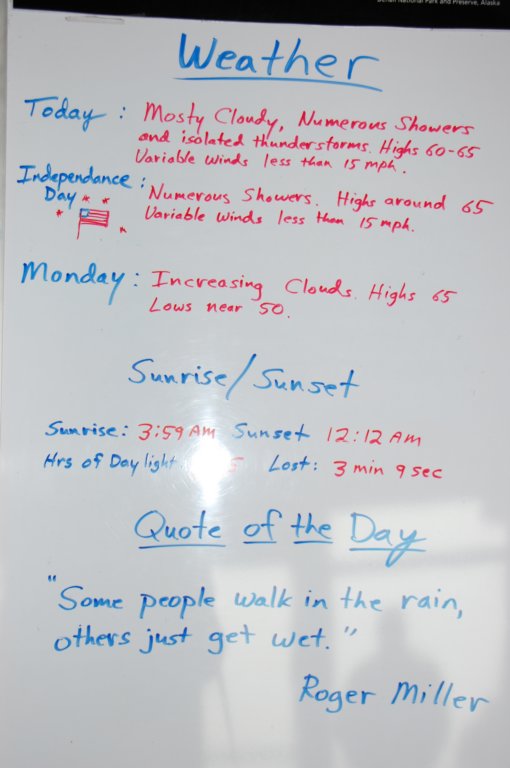 Denali National Park and Preserve, Alaska
Weather
Today : Mosty Cloudy, Numerous Showers
and isolated thunderstorms. Highs 60-65
Variable winds less than 15 mph.
Independance Day :
Numerous Showers. Highs around 65
Variable winds less than 15 mph.
Monday : Increasing Clouds. Highs 65
Lows near 50.
Sunrise/Sunset
Sunrise: 3:59 AM Sunset 12:12 AM
Hrs of Daylight Lost: 3 min 9 sec
Quote of the Day
"Some people walk in the rain,
others just get wet."
Roger Miller